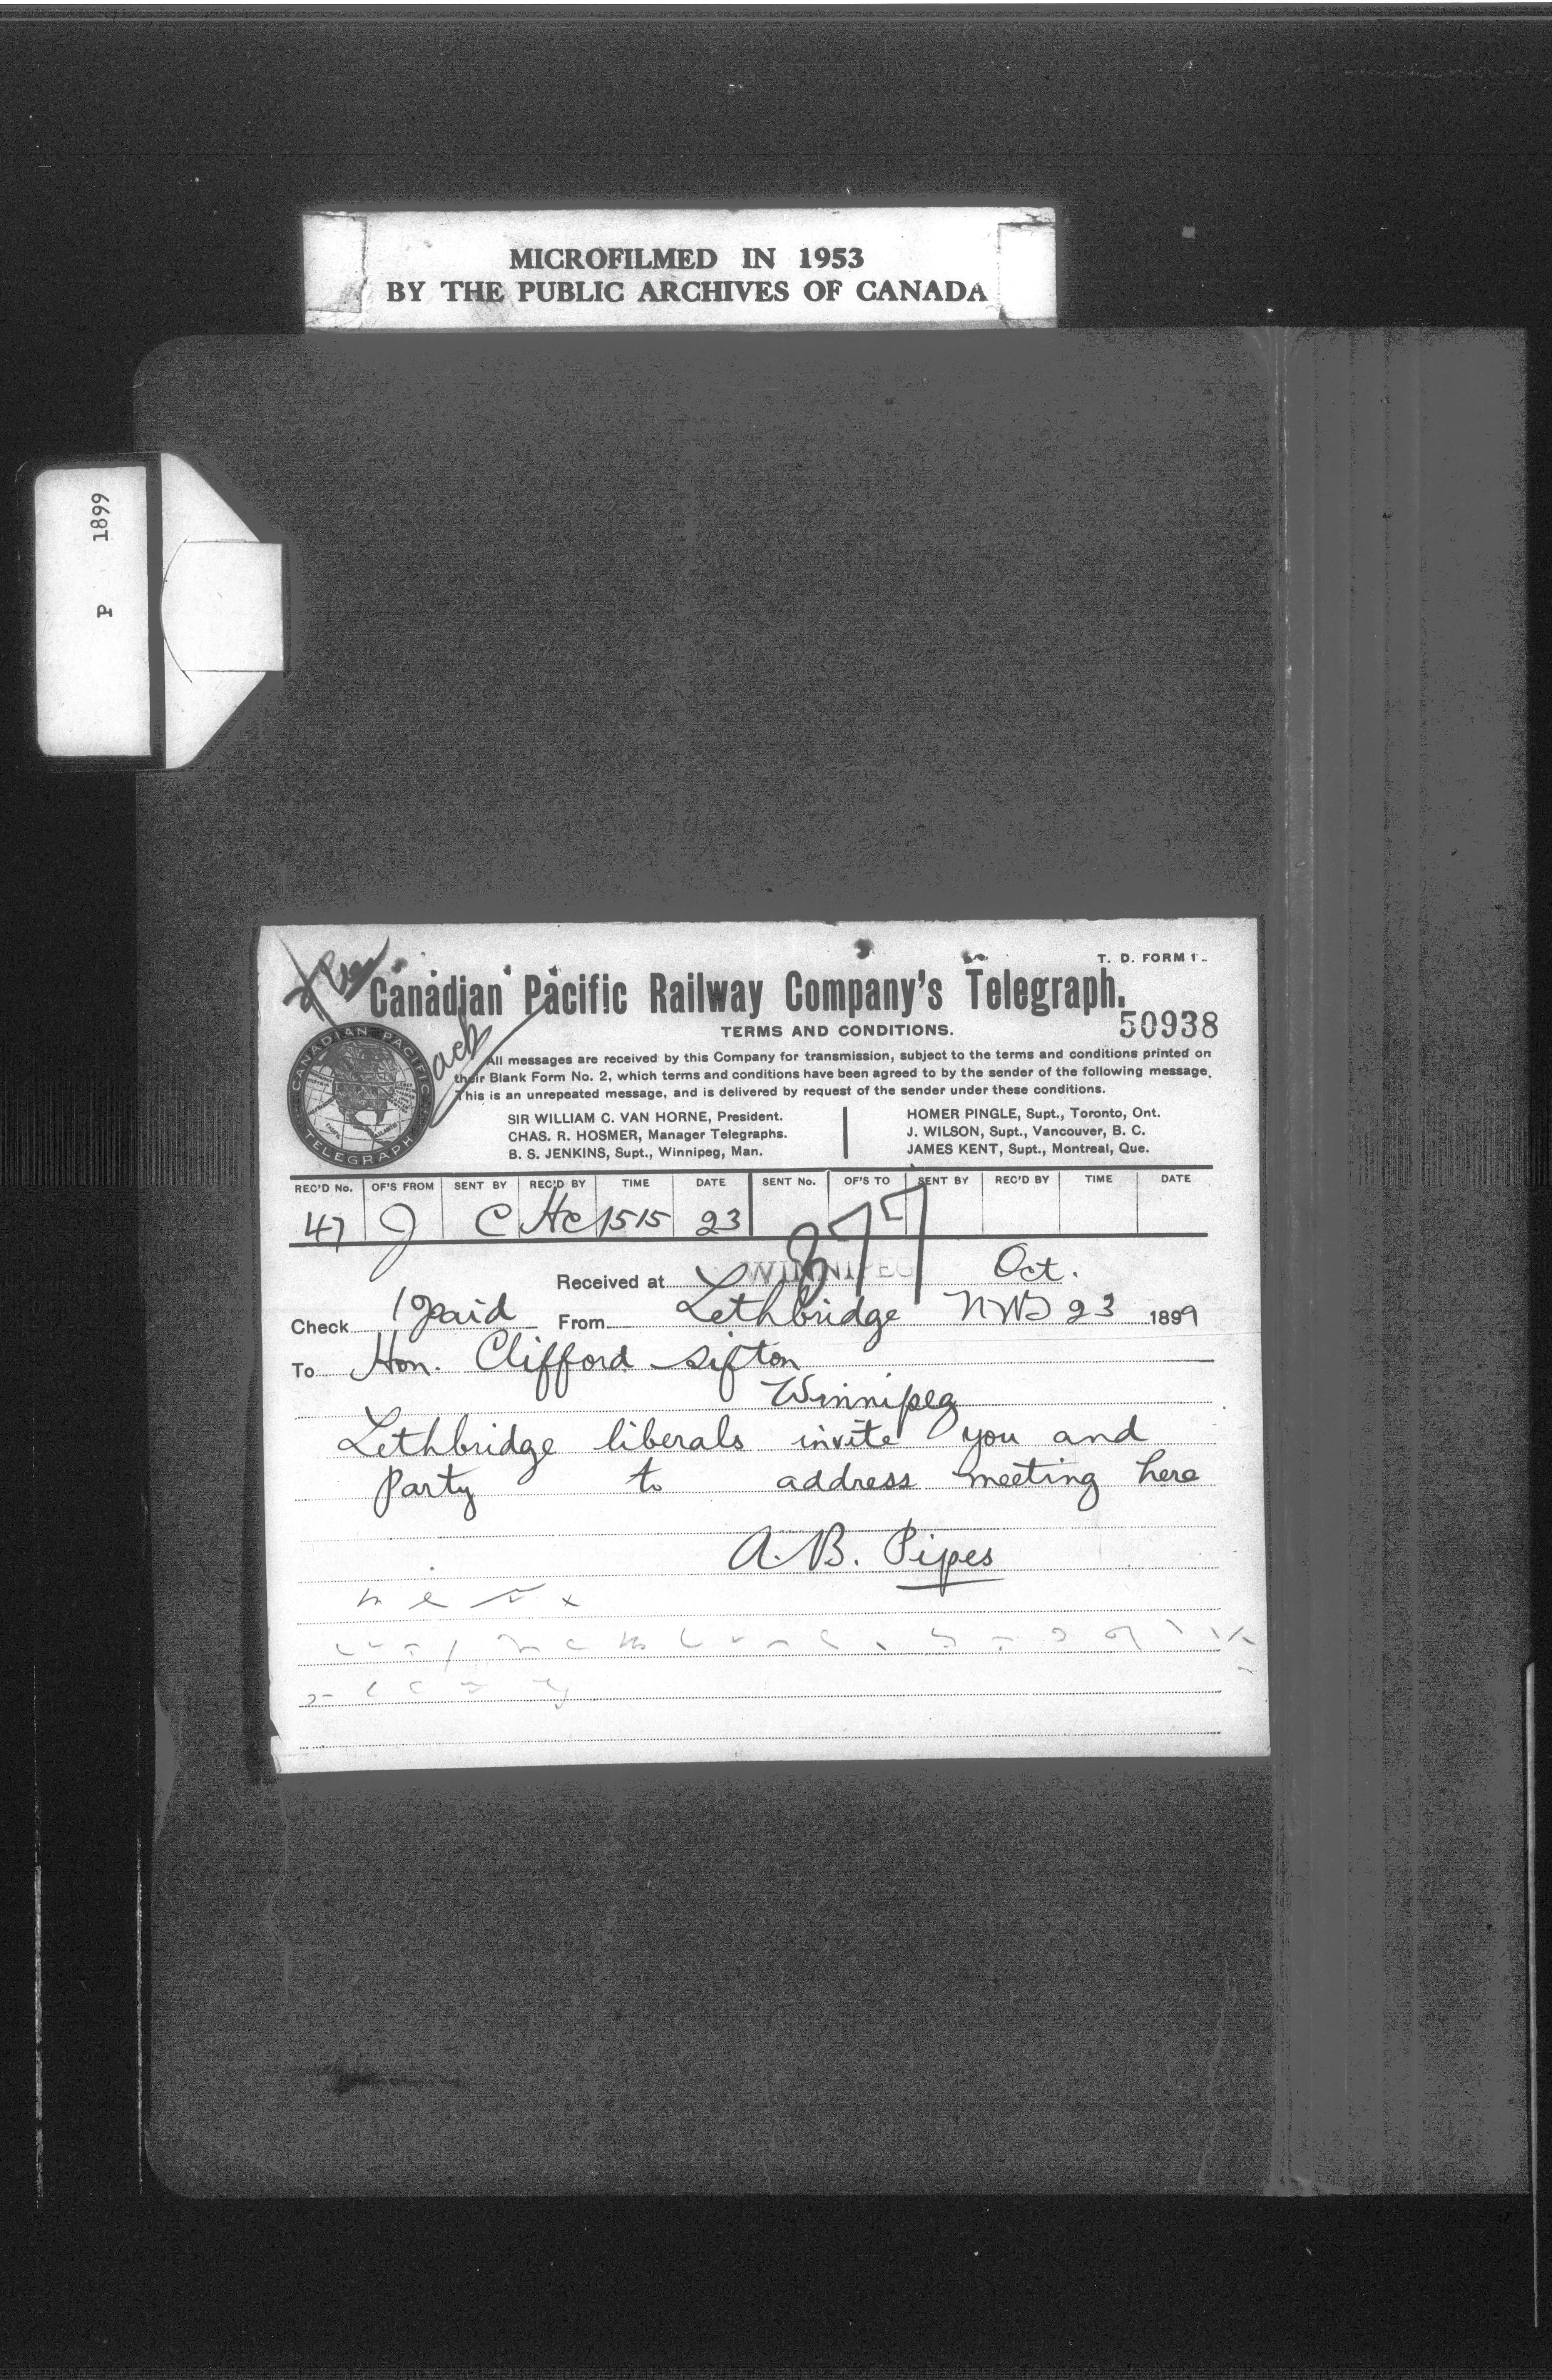 MICROFILMED IN 1953
BY THE PUBLIC ARCHIVES OF CANADA
P 1899
T. D. FORM 1
Canadian Pacific Railway Company's Telegraph.
TERMS AND CONDITIONS.
50938
CANADIAN PACIFIC
TELEGRAPH
ack
All messages are received by this Company for transmission, subject to the terms and conditions printed on
their Blank Form No. 2, which terms and conditions have been agreed to by the sender of the following message.
This is an unrepeated message, and is delivered by request of the sender under these conditions.
SIR WILLIAM C. VAN HORNE, President.
CHAS. R. HOSMER, Manager Telegraphs.
B. S. JENKINS, Supt., Winnipeg, Man.
HOMER PINGLE, Supt., Toronto, Ont.
J. WILSON, Supt., Vancouver, B. C.
JAMES KENT, Supt., Montreal, Que.
REC'D No. OF'S FROM SENT BY REC'D BY TIME DATE SENT No. OF'S TO SENT BY REC'D BY TIME DATE
47 J C HC 1515 23
377
Received at WINNIPEG Oct.
Check paid From Lethbridge NWT 23 1899
To Hon. Clifford Sifton
Winnipeg
Lethbridge liberals invite you and
Party to address meeting here
A. B. Pipes